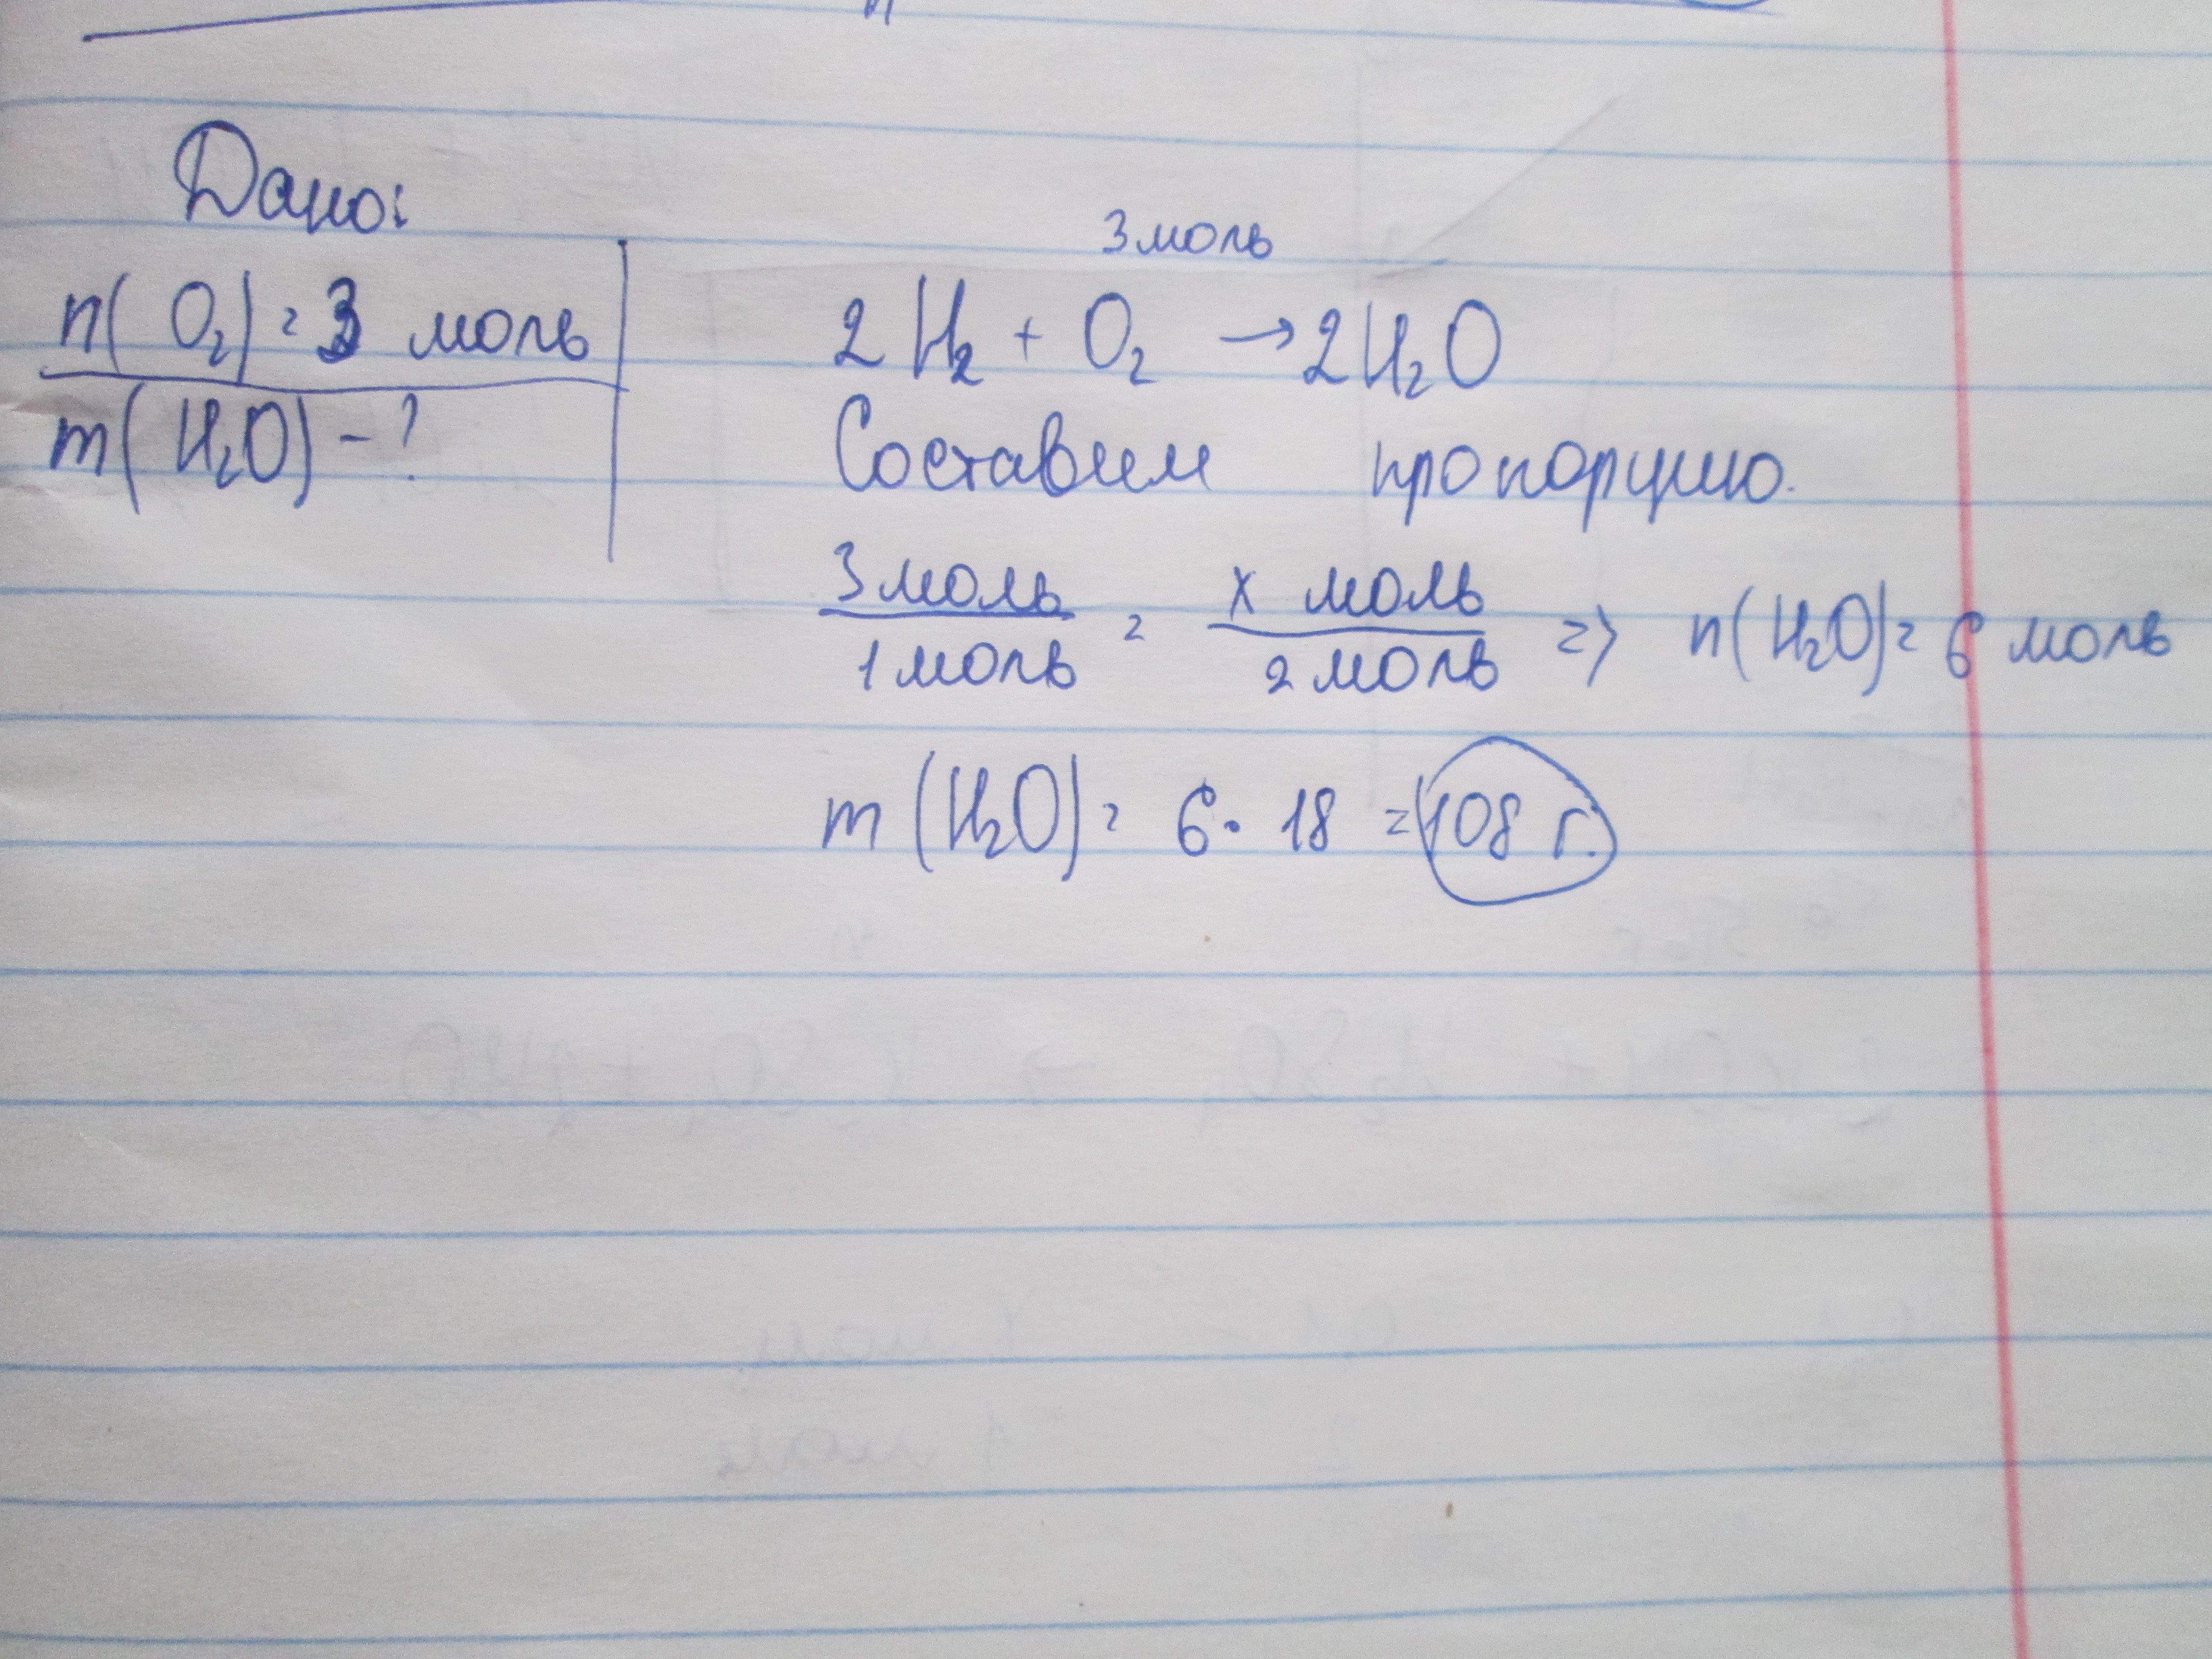 Дано:
n(O₂) = 3 моль
m(H₂O) - ?
3 моль
2H₂ + O₂ → 2H₂O
Составим пропорцию.
3 моль / 1 моль = x моль / 2 моль => n(H₂O) = 6 моль
m(H₂O) = 6 · 18 = 108 г.